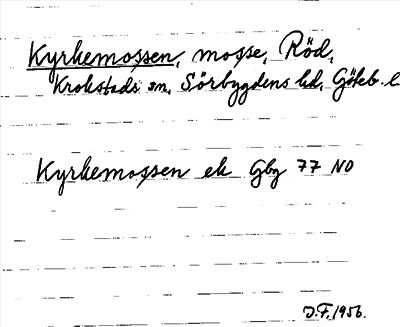 Kyrkemossen, mosse, Röd,
Krokstads sn, Sörbygdens hd, Göteb. l.
Kyrkemossen ek Gbg 77 NO
J.F. 1956.